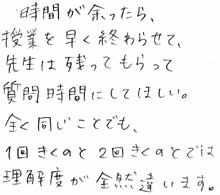 時間が余ったら、
授業を早く終わらせて、
先生は残ってもらって
質問時間にしてほしい。
全く同じことでも、
1回きくのと2回きくのとでは
理解度が全然違います。